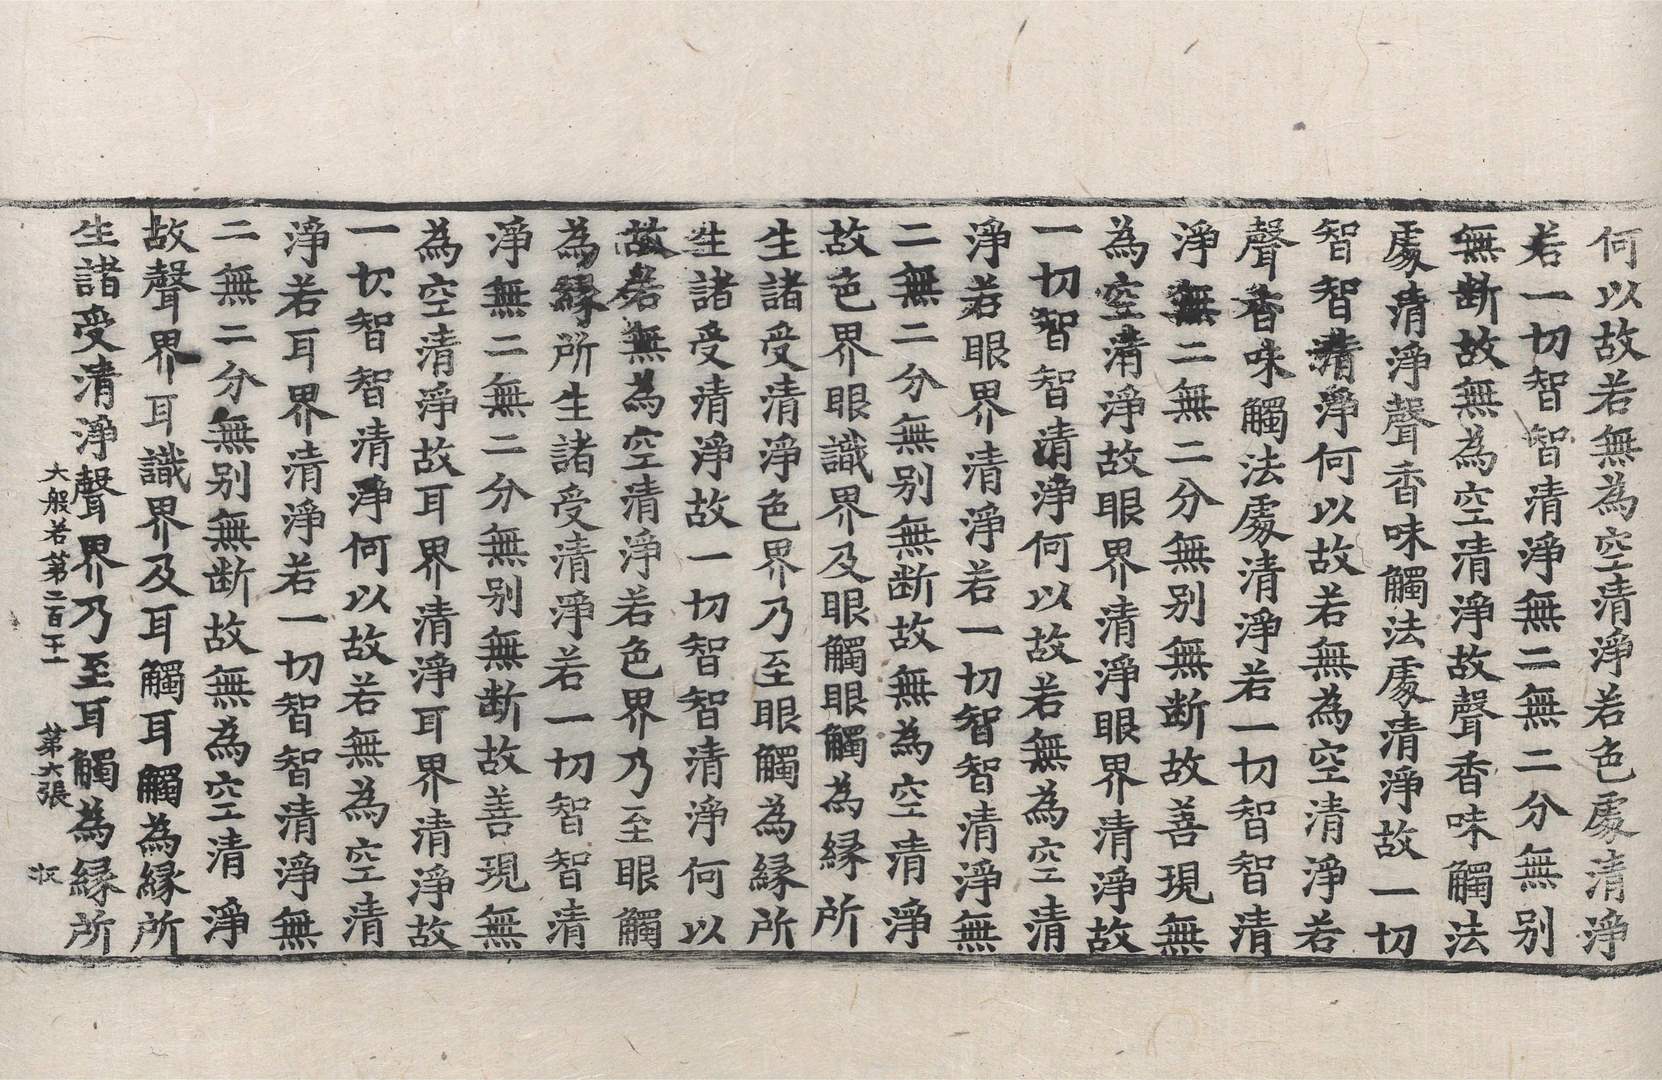 何以故若無為空清淨若色處清淨
若一切智智清淨無二無二分無别
無断故無為空清淨故聲香味觸法
處清淨聲香味觸法處清淨故一切
智智清淨何以故若無為空清淨若
聲香味觸法處清淨若一切智智清
淨無二無二分無别無断故善現無
為空清淨故眼界清淨眼界清淨故
一切智智清淨何以故若無為空清
淨若眼界清淨若一切智智清淨無
二無二分無别無断故無為空清淨
故色界眼識界及眼觸眼觸為縁所
生諸受清淨色界乃至眼觸為縁所
生諸受清淨故一切智智清淨何以
故若無為空清淨若色界乃至眼觸
為縁所生諸受清淨若一切智智清
淨無二無二分無别無断故善現無
為空清淨故耳界清淨耳界清淨故
一切智智清淨何以故若無為空清
淨若耳界清淨若一切智智清淨無
二無二分無别無断故無為空清淨
故聲界耳識界及耳觸耳觸為縁所
生諸受清淨聲界乃至耳觸為縁所
大般若第二百十一 第六張